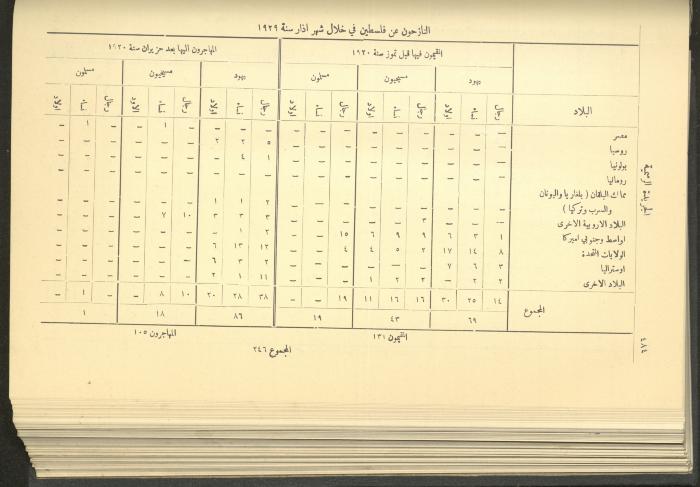 النازحون عن فلسطين في خلال شهر اذار سنة ١٩٢٩
البلاد المقيمون فيها قبل تموز سنة ١٩٢٠ المهاجرون اليها بعد حزيران سنة ١٩٢٠
يهود مسيحيون مسلمون يهود مسيحيون مسلمون
رجال نساء اولاد رجال نساء اولاد رجال نساء اولاد رجال نساء اولاد رجال نساء اولاد رجال نساء اولاد
مصر – – – – – – – – – – – – – ١ – – ١ –
روسيا – – – – – – – – – ٥ ٢ ٢ – – – – – –
بولونيا – – – – – – – – – ١ ٤ – – – – – – –
رومانيا – – – – – – – – – – – – – – – – – –
ممالك البلقان ( بلغاريا واليونان
والسرب وتركيا ) – – – – – – – – – ٢ ١ ١ – – – – – –
البلاد الاروبية الاخرى – – – ٣ – – – – – ٣ ٣ ٣ ١٠ ٧ – – – –
اواسط وجنوبي اميركا ١ ٣ ٦ ٩ ٩ ٦ ١٥ – – ٢ ١ – – – – – – –
الولايات المتحدة ٨ ١٤ ١٧ ٢ ٥ ٤ ٤ – – ١٢ ١٣ ٦ – – – – – –
اوستراليا ٣ ٦ ٧ – – – – – – ٢ ٣ ٦ – – – – – –
البلاد الاخرى ٢ ٢ – ٢ ٢ ١ – – – ١١ ١ ٢ – – – – – –
المجموع ١٤ ٢٥ ٣٠ ١٦ ١٦ ١١ ١٩ – – ٣٨ ٢٨ ٢٠ ١٠ ٨ – – ١ –
٦٩ ٤٣ ١٩ ٨٦ ١٨ ١
المقيمون ١٣١ المهاجرون ١٠٥
المجموع ٢٤٦
الجريدة الرسمية
٤٨٤